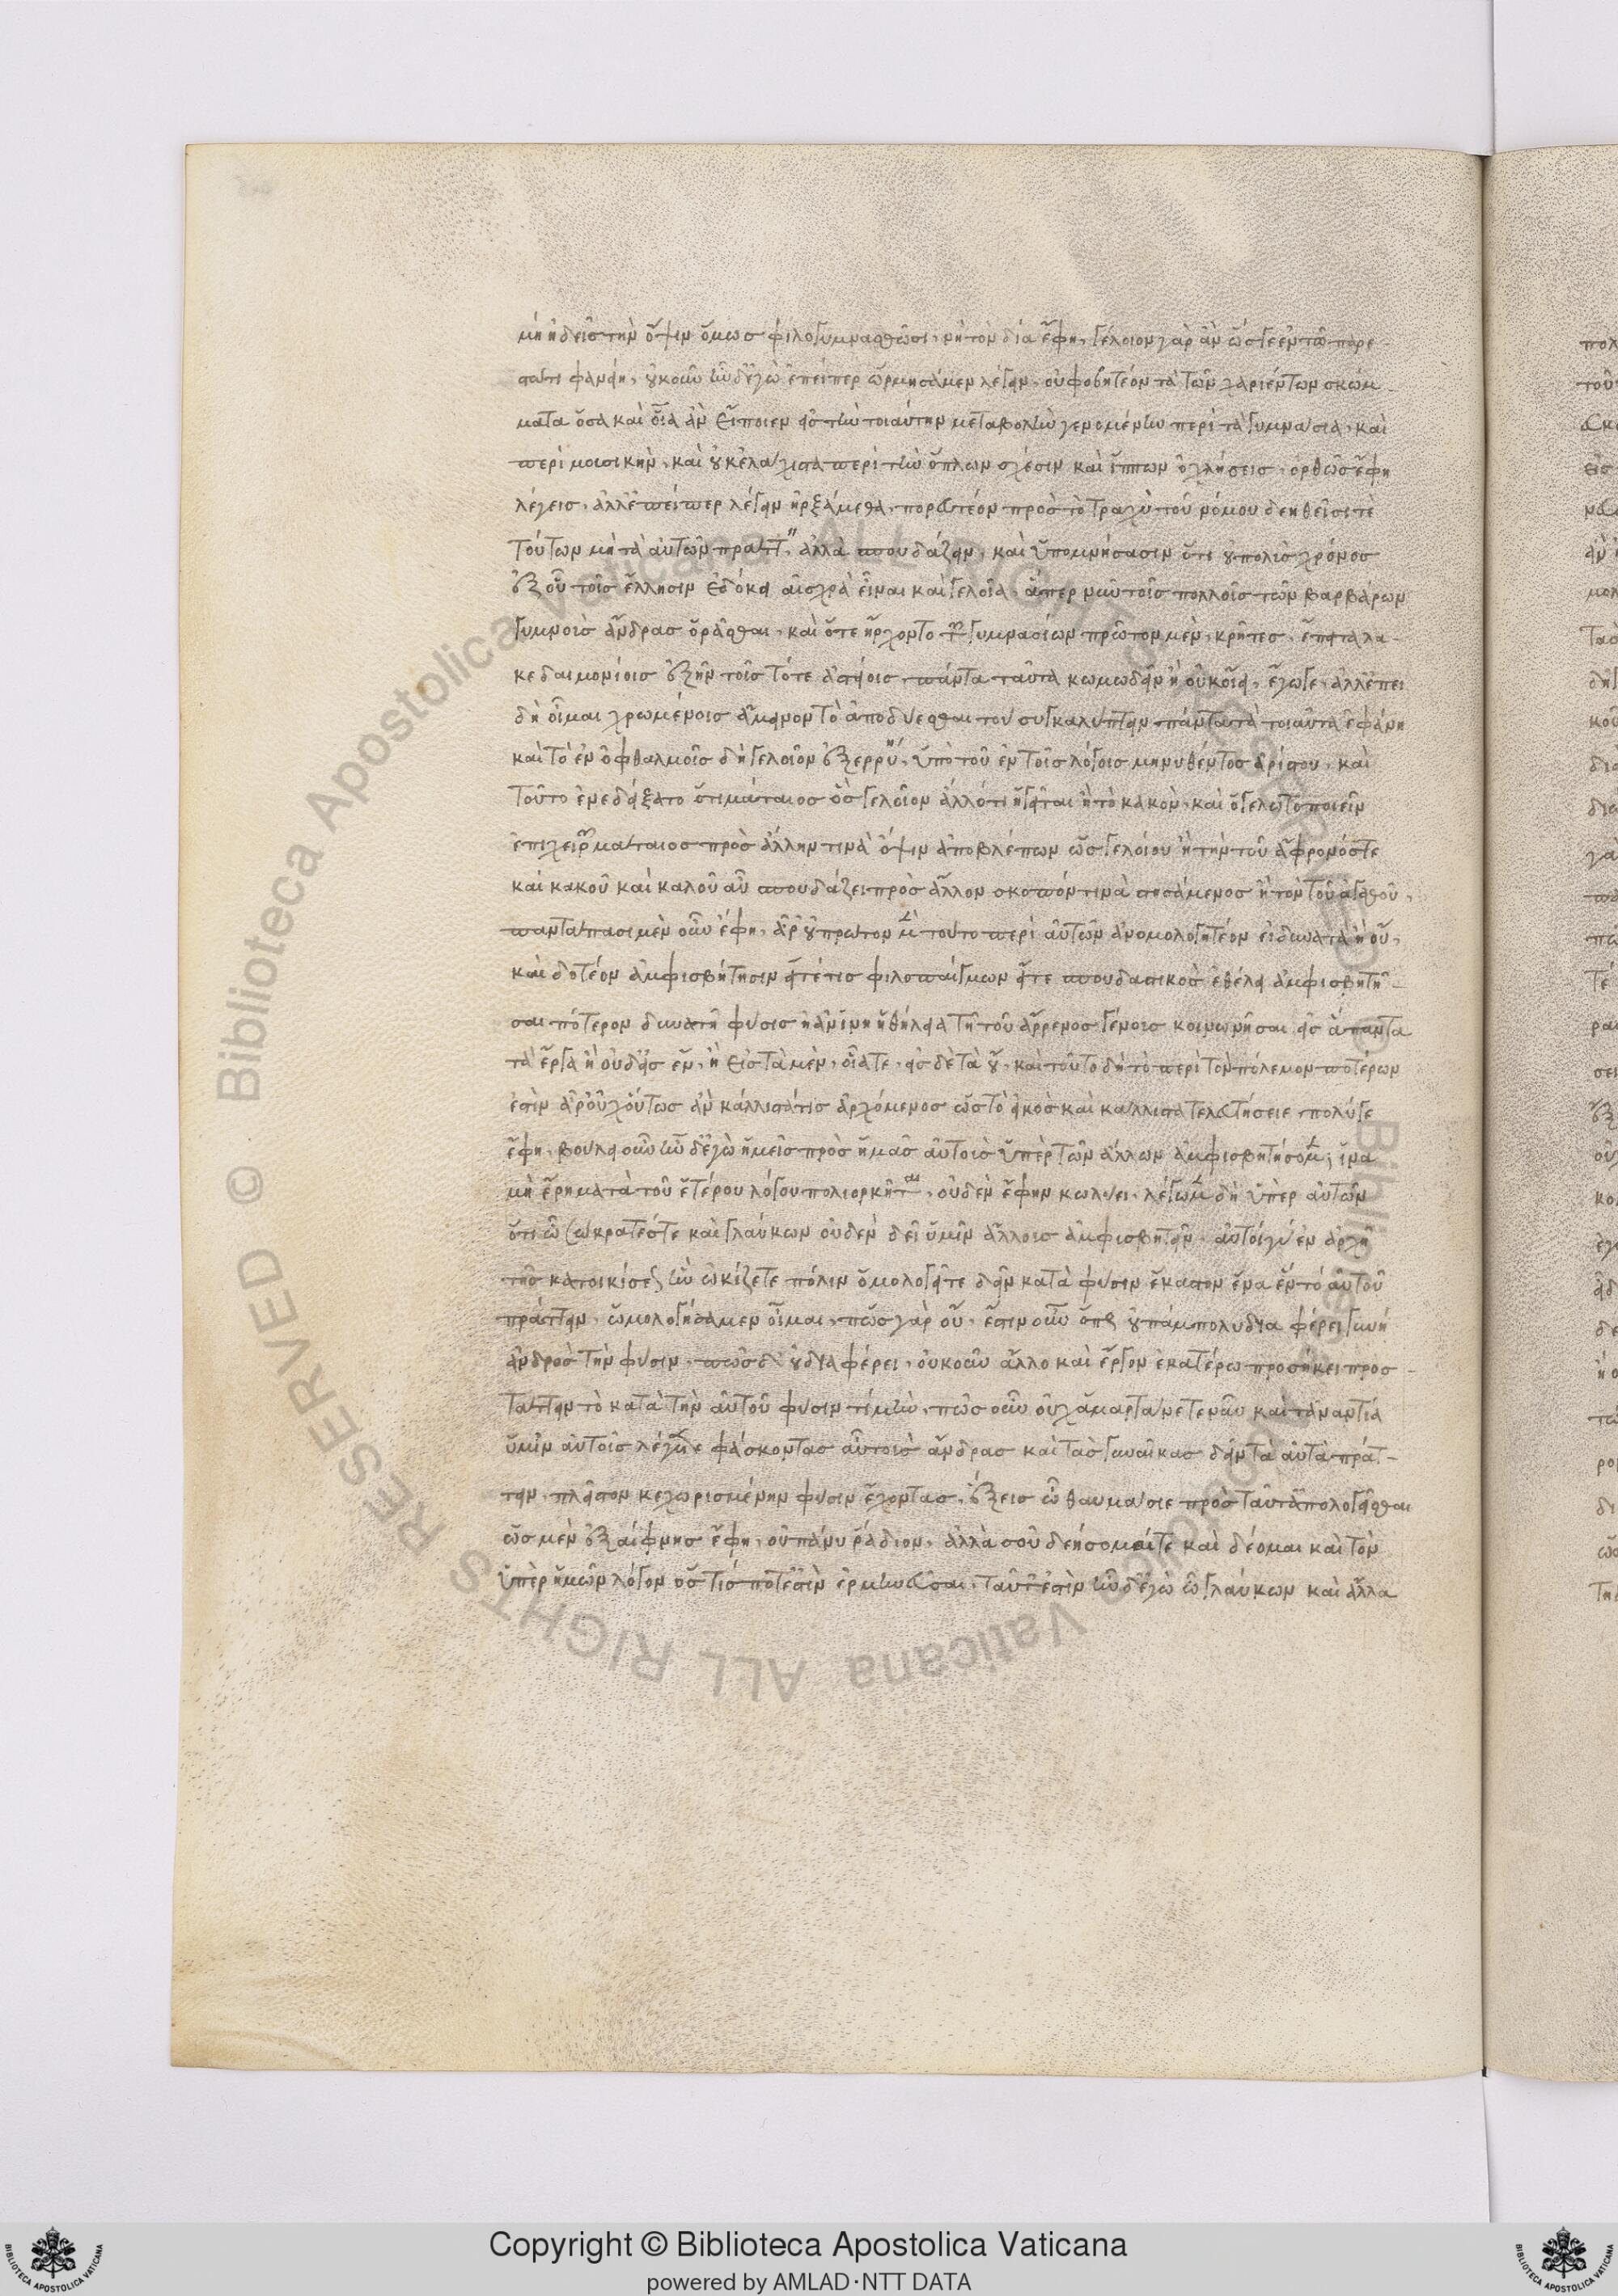 μὴ ἡδεῖς τὴν ὄψιν ὅμως φιλογυμναστῶσι. νὴ τὸν δία ἔφη. γέλοιον γὰρ ἂν ὥς γε ἐν τῶ παρε
στῶτι φανείη. οὐκοῦν ἦν δ' ἐγὼ ἐπείπερ ὡρμήσαμεν λέγειν. οὐ φοβητέον τὰ τῶν χαριέντων σκώμ
ματα ὅσα καὶ οἷα ἂν εἴποιεν εἰς τὴν τοιαύτην μεταβολὴν γενομένην περὶ τὰ γυμνάσια. καὶ
περὶ μουσικὴν. καὶ οὐκ ἐλάχιστα περὶ τὴν ὅπλων σχέσιν καὶ ἵππων ὀχλήσεις. ὀρθῶς ἔφη
λέγεις. ἀλλ' ἐπείπερ λέγειν ἠρξάμεθα. πορευτέον πρὸς τὸ τραχὺ τοῦ νόμου δεηθεῖσί τε
τούτων μὴ τὰ αὑτῶν πράττειν ἀλλὰ σπουδάζειν. καὶ ὑπομνήσασιν ὅτι οὐ πολὺς χρόνος
ἐξ οὗ τοῖς ἕλλησιν ἐδόκει αἰσχρὰ εἶναι καὶ γελοῖα. ἅπερ νῦν τοῖς πολλοῖς τῶν βαρβάρων
γυμνοὺς ἄνδρας ὁρᾶσθαι. καὶ ὅτε ἤρχοντο τῶν γυμνασίων πρῶτον μὲν κρῆτες. ἔπειτα λα-
κεδαιμόνιοις ἐξῆν τοῖς τότε ἀστείοις πάντα ταῦτα κωμωδεῖν ἢ οὐκ οἴει. ἔγωγε. ἀλλ' ἐπει
δὴ οἶμαι χρωμένοις ἄμεινον τὸ ἀποδύεσθαι τοῦ συγκαλύπτειν πάντα τὰ τοιαῦτα ἐφάνη
καὶ τὸ ἐν ὀφθαλμοῖς δὴ γελοῖον ἐξερρύη. ὑπὸ τοῦ ἐν τοῖς λόγοις μηνυθέντος ἀρίστου. καὶ
τοῦτο ἐνεδείξατο ὅτι μάταιος ὃς γελοῖον ἄλλό τι ἡγεῖται ἢ τὸ κακὸν. καὶ ὁ γελωτοποιεῖν
ἐπιχειρῶν μάταιος πρὸς ἄλλην τινὰ ὄψιν ἀποβλέπων ὡς γελοίου ἢ τὴν τοῦ ἄφρονός τε
καὶ κακοῦ καὶ καλοῦ αὖ σπουδάζει πρὸς ἄλλον σκοπόν τινὰ στησάμενος ἢ τὸν τοῦ ἀγαθοῦ.
πανταπασι μὲν οὖν ἔφη. ἆρ' οὐ πρῶτον μὲν τοῦτο περὶ αὐτῶν ἀνομολογητέον εἰ δυνατὰ ἢ οὔ.
καὶ δοτέον ἀμφισβήτησιν εἴτέ τις φιλοπαίγμων εἴτε σπουδαστικὸς ἐθέλει ἀμφισβητῆ-
σαι πότερον δυνατὴ φύσις ἡ ἀνίνη ἡ θήλεια τῆ τοῦ ἄρρενος γένους κοινωνῆσαι εἰς ἅπαντα
τὰ ἔργα ἢ οὐδ' εἰς ἕν. ἢ εἰς τὰ μὲν. οἵα τε. εἰς δὲ τὰ οὔ. καὶ τοῦτο δὴ τὸ περὶ τὸν πόλεμον ποτέρων
ἐστὶν ἆρ' οὐχ οὕτως ἂν κάλλιστά τις ἀρχόμενος ὡς τὸ εἰκὸς καὶ κάλλιστα τελευτήσειε πολύ γε
ἔφη. βούλει οὖν ἦν δ' ἐγὼ ἡμεῖς πρὸς ἡμᾶς αὐτοὺς ὑπὲρ τῶν ἄλλων ἀμφισβητήσομεν; ἵνα
μὴ ἔρημα τὰ τοῦ ἑτέρου λόγου πολιορκῆται. οὐδὲν ἔφην κωλύει. λέγωμεν δὴ ὑπὲρ αὐτῶν
ὅτι ὦ σώκρατές τε καὶ γλαύκων οὐδὲν δεῖ ὑμῖν ἄλλους ἀμφισβητεῖν. αὐτοὶ γὰρ ἐν ἀρχῆ
τῆς κατοικίσεως ἣν ὠκίζετε πόλιν ὁμολογεῖτε δεῖν κατὰ φύσιν ἕκαστον ἕνα ἓν τὸ αὑτοῦ
πράττειν. ὡμολογήσαμεν οἶμαι. πῶς γὰρ οὔ. ἔστιν οὖν ὅπως οὐ πάμπολυ διαφέρει γυνὴ
ἀνδρὸς τὴν φύσιν. πῶς δ' οὐ διαφέρει. οὐκοῦν ἄλλο καὶ ἔργον ἑκατέρω προσήκει προσ-
τάττειν τὸ κατὰ τὴν αὑτοῦ φύσιν τί μήν. πῶς οὖν οὐχ ἁμαρτάνετε νῦν καὶ τἀναντία
ὑμῖν αὐτοῖς λέγετε φάσκοντας αὐτοὺς ἄνδρας καὶ τὰς γυναῖκας δεῖν τὰ αὐτὰ πράτ-
τειν. πλεῖστον κεχωρισμένην φύσιν ἔχοντας. ἕξεις ὦ θαυμάσιε πρὸς ταῦτ' ἀπολογεῖσθαι
ὡς μὲν ἐξαίφνης ἔφη. οὐ πάνυ ῥάδιον. ἀλλὰ σοῦ δεήσομαί τε καὶ δέομαι καὶ τὸν
ὑπὲρ ἡμῶν λόγον ὅς τίς ποτ' ἐστὶν ἑρμηνεῦσαι. ταῦτ' ἐστὶν ἦν δ' ἐγὼ ὦ γλαύκων καὶ ἄλλα
Copyright © Biblioteca Apostolica Vaticana
powered by AMLAD·NTT DATA